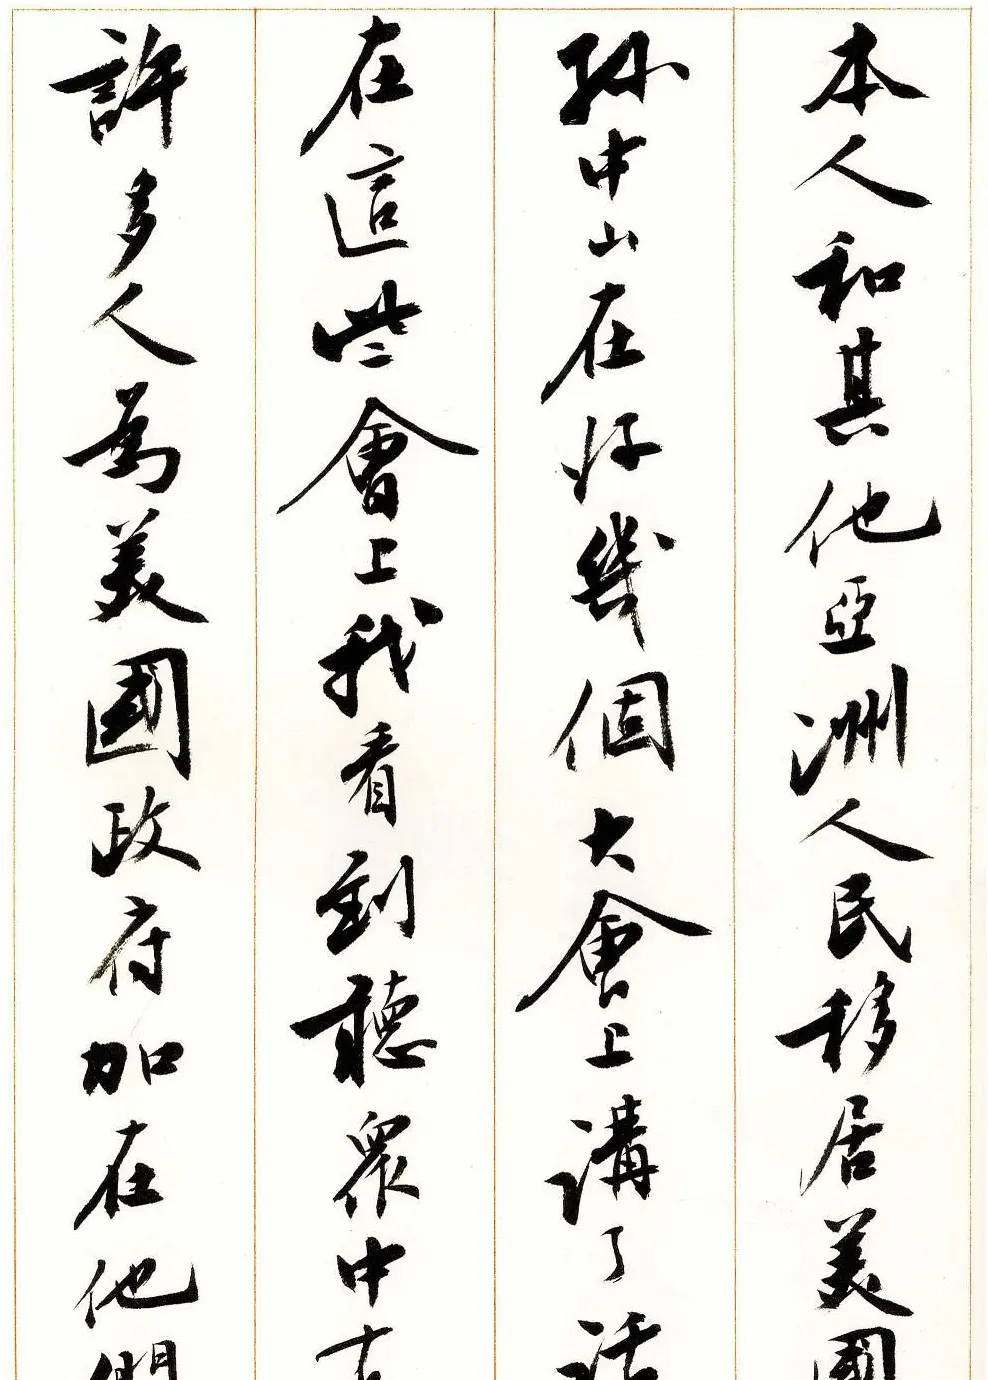 本人和其他亞洲人民移居美國
孫中山在好幾個大會上講了話
在這些會上我看到聽眾中有
許多人為美國政府加在他們